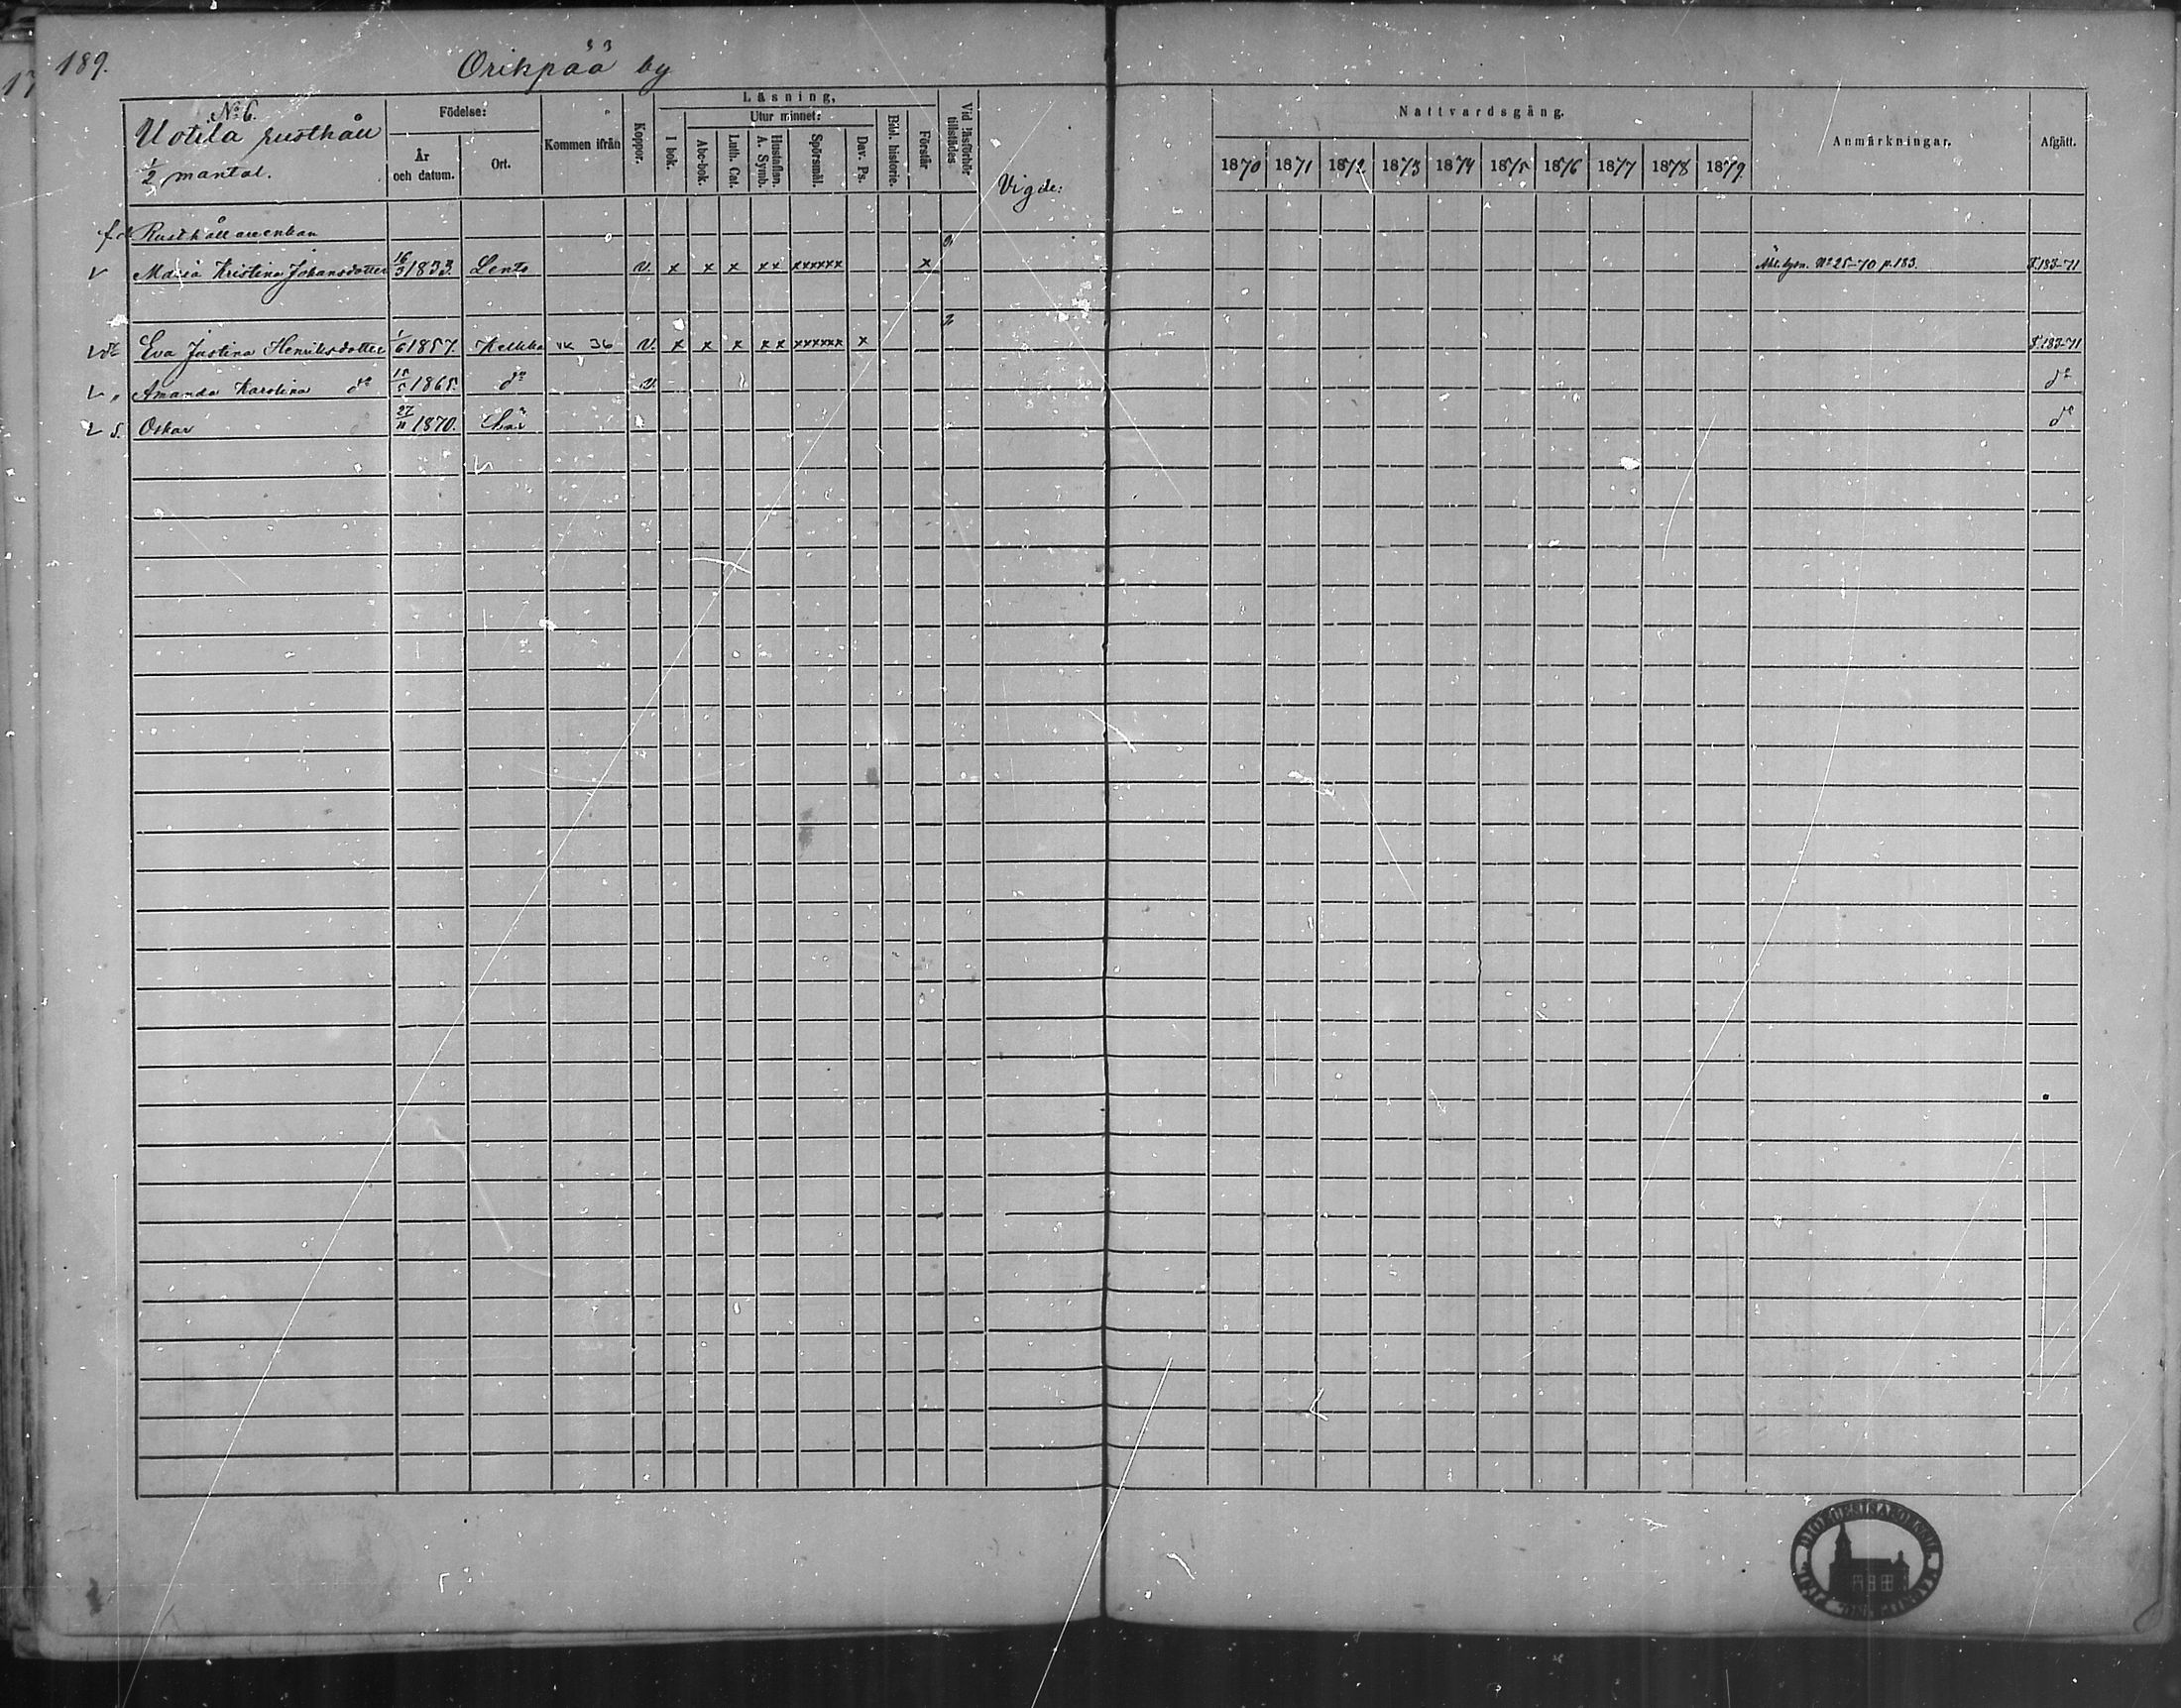 189.
Orihpää by
No 6.
Uotila rusthåll
1/2 mantal.
Födelse:
År och datum.
Ort.
Kommen ifrån
Koppor.
Läsning,
I bok.
Utur minnet:
Abc-bok.
Luth. Cat.
Hustaflan. A. Symb.
Spörsmål.
Dav. Ps.
Bibl. historie.
Förstår
Vid läsförhör tillstädes
Vigde:
Nattvardsgång.
1870 1871 1872 1873 1874 1875 1876 1877 1878 1879
Anmärkningar.
Afgått.
f.d. Rusthållareenkan
Maria Kristina Johansdotter 16/3 1833. Lento v. x x x xx xxxxxx x No 25-70 p. 183. T.183-71
dr Eva Justina Henriksdotter 1/6 1857. VK 36 v. x x x xx xxxxxx x T.183-71
" Amanda Karolina do 1865. do v. do
S. Oskar 27/11 1870. do